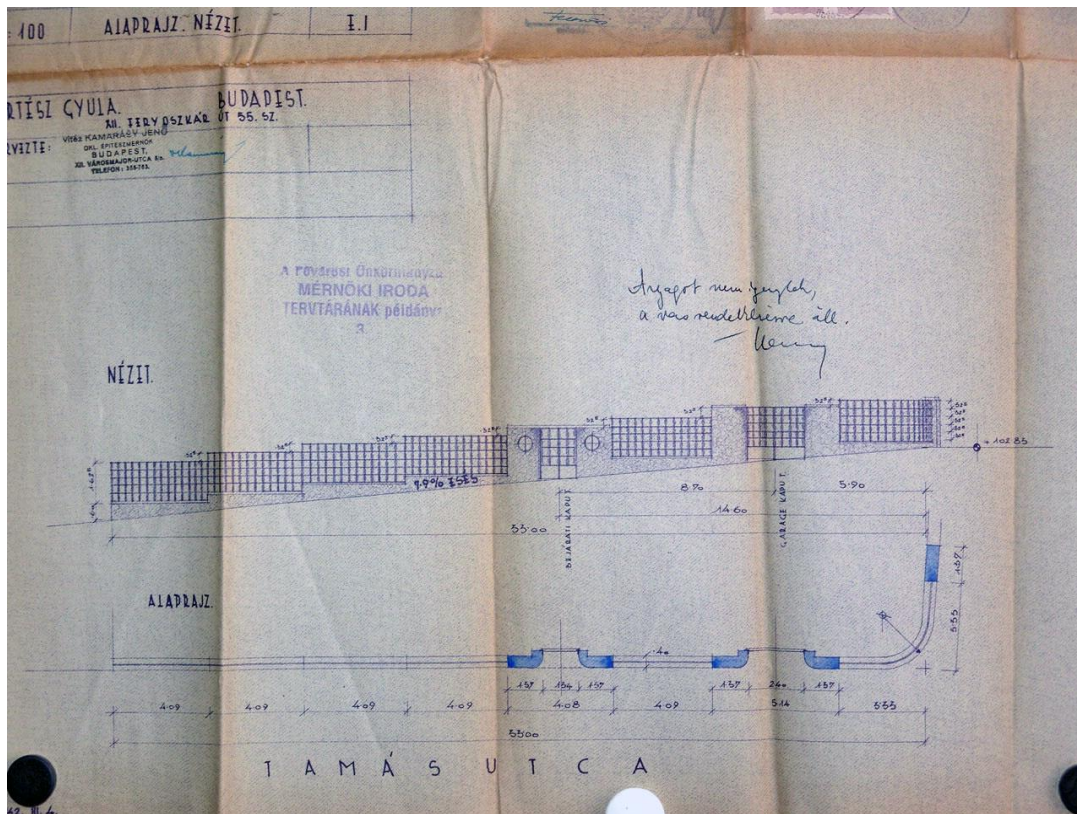 : 100 ALAPRAJZ. NÉZET. I.1
RTÉSZ GYULA. BUDAPEST.
XII. FERY OSZKÁR ÚT 35. SZ.
RVEZTE: Vitéz KAMARÁSY JENŐ
OKL. ÉPITÉSZMÉRNÖK
BUDAPEST,
XII. VÁROSMAJOR-UTCA
TELEFON:
A Fővárosi Önkormányza
MÉRNÖKI IRODA
TERVTÁRÁNAK példány
3.
Anyagot nem igénylek,
a vas rendelkezésre áll.
NÉZET.
7.9% ESÉS
+ 102.85
8.70 5.90
14.60
33.00
BEJÁRATI KAPU T.
GARAGE KAPU T.
1.37
5.33
ALAPRAJZ.
.40
1.37 1.34 1.37 1.37 2.40 1.37
4.09 4.09 4.09 4.09 4.08 4.09 5.14 5.33
33.00
TAMÁS UTCA